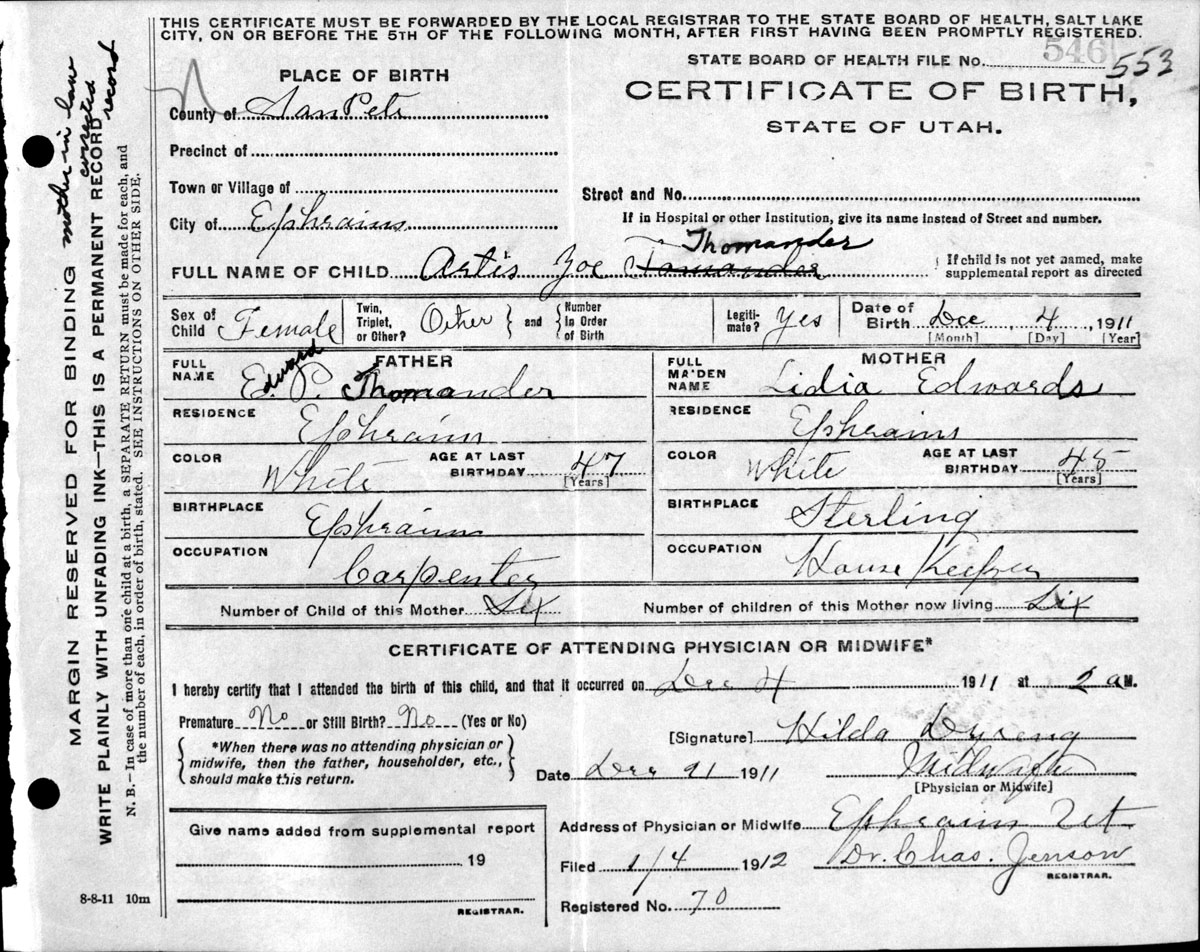 THIS CERTIFICATE MUST BE FORWARDED BY THE LOCAL REGISTRAR TO THE STATE BOARD OF HEALTH, SALT LAKE
CITY, ON OR BEFORE THE 5TH OF THE FOLLOWING MONTH, AFTER FIRST HAVING BEEN PROMPTLY REGISTERED.
STATE BOARD OF HEALTH FILE No. 546 553
PLACE OF BIRTH
CERTIFICATE OF BIRTH,
STATE OF UTAH.
County of SanPete
Precinct of
Town or Village of
Street and No.
City of Ephraim
If in Hospital or other Institution, give its name instead of Street and number.
Thomander
FULL NAME OF CHILD Artis Zoe Tomander
If child is not yet named, make supplemental report as directed
Sex of Child Female
Twin, Triplet, or Other? Other and Number In Order of Birth
Legitimate? Yes
Date of Birth Dec, 4, 1911
[Month] [Day] [Year]
FATHER
FULL NAME Edward P. Thomander
RESIDENCE Ephraim
COLOR White
AGE AT LAST BIRTHDAY 47
[Years]
BIRTHPLACE Ephraim
OCCUPATION Carpenter
MOTHER
FULL MAIDEN NAME Lidia Edwards
RESIDENCE Ephraim
COLOR White
AGE AT LAST BIRTHDAY 45
[Years]
BIRTHPLACE Sterling
OCCUPATION House Keeper
Number of Child of this Mother Six
Number of children of this Mother now living Six
CERTIFICATE OF ATTENDING PHYSICIAN OR MIDWIFE*
I hereby certify that I attended the birth of this child, and that it occurred on Dec 4 1911 at 2 a M.
Premature No or Still Birth? No (Yes or No)
*When there was no attending physician or
midwife, then the father, householder, etc.,
should make this return.
[Signature] Hilda Dyreng
Date Dec 21 1911
Midwife
[Physician or Midwife]
Give name added from supplemental report
19
REGISTRAR.
Address of Physician or Midwife Ephraim Ut
Filed 1/4 1912 Dr. Chas. Jenson
REGISTRAR.
Registered No. 70
8-8-11 10m
MARGIN RESERVED FOR BINDING
WRITE PLAINLY WITH UNFADING INK—THIS IS A PERMANENT RECORD
N. B.—In case of more than one child at a birth, a SEPARATE RETURN must be made for each, and
the number of each, in order of birth, stated. SEE INSTRUCTIONS ON OTHER SIDE.
mother in law
corrected
record